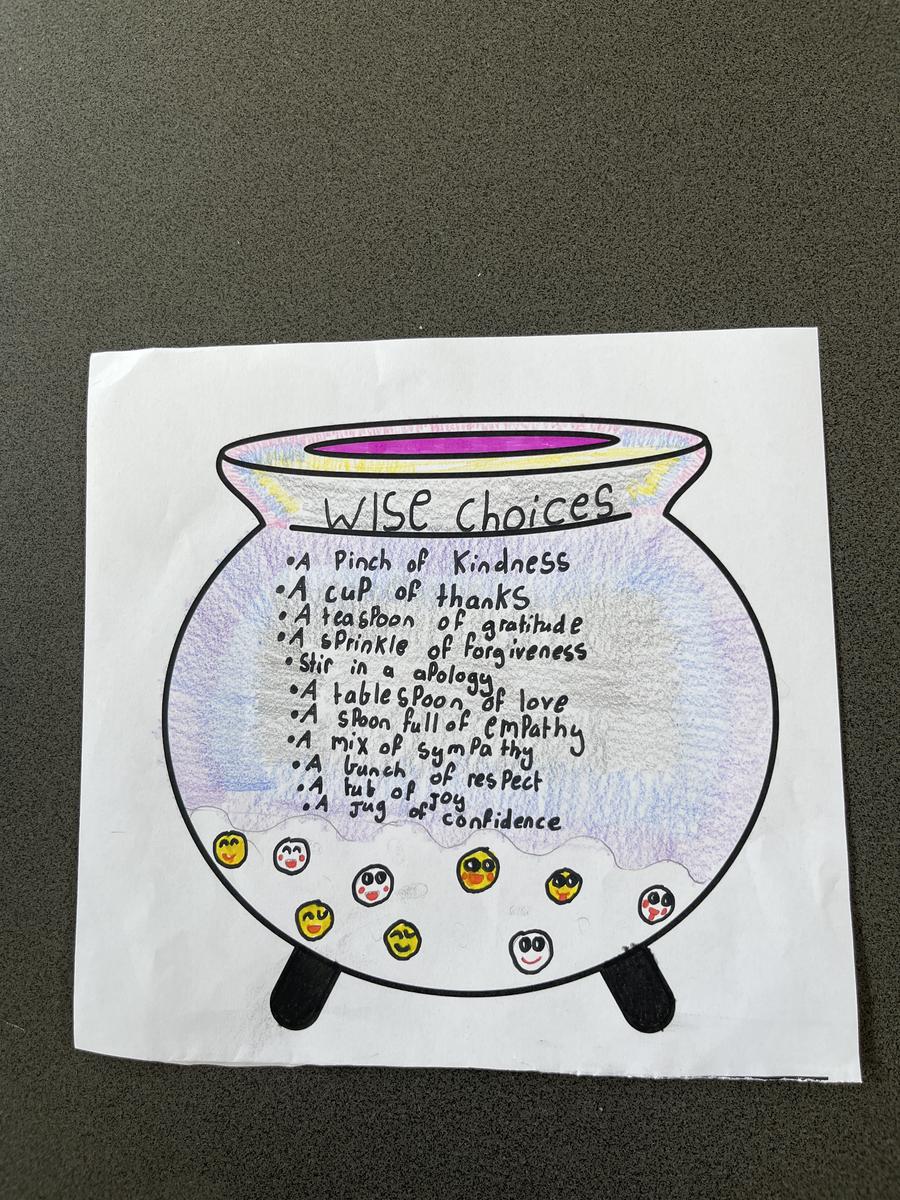 WISE choices
•A Pinch of Kindness
•A cup of thanks
•A teaspoon of gratitude
•A sprinkle of forgiveness
•Stir in a apology
•A tablespoon of love
•A spoon full of empathy
•A mix of sympathy
•A bunch of respect
•A tub of joy
•A jug of confidence